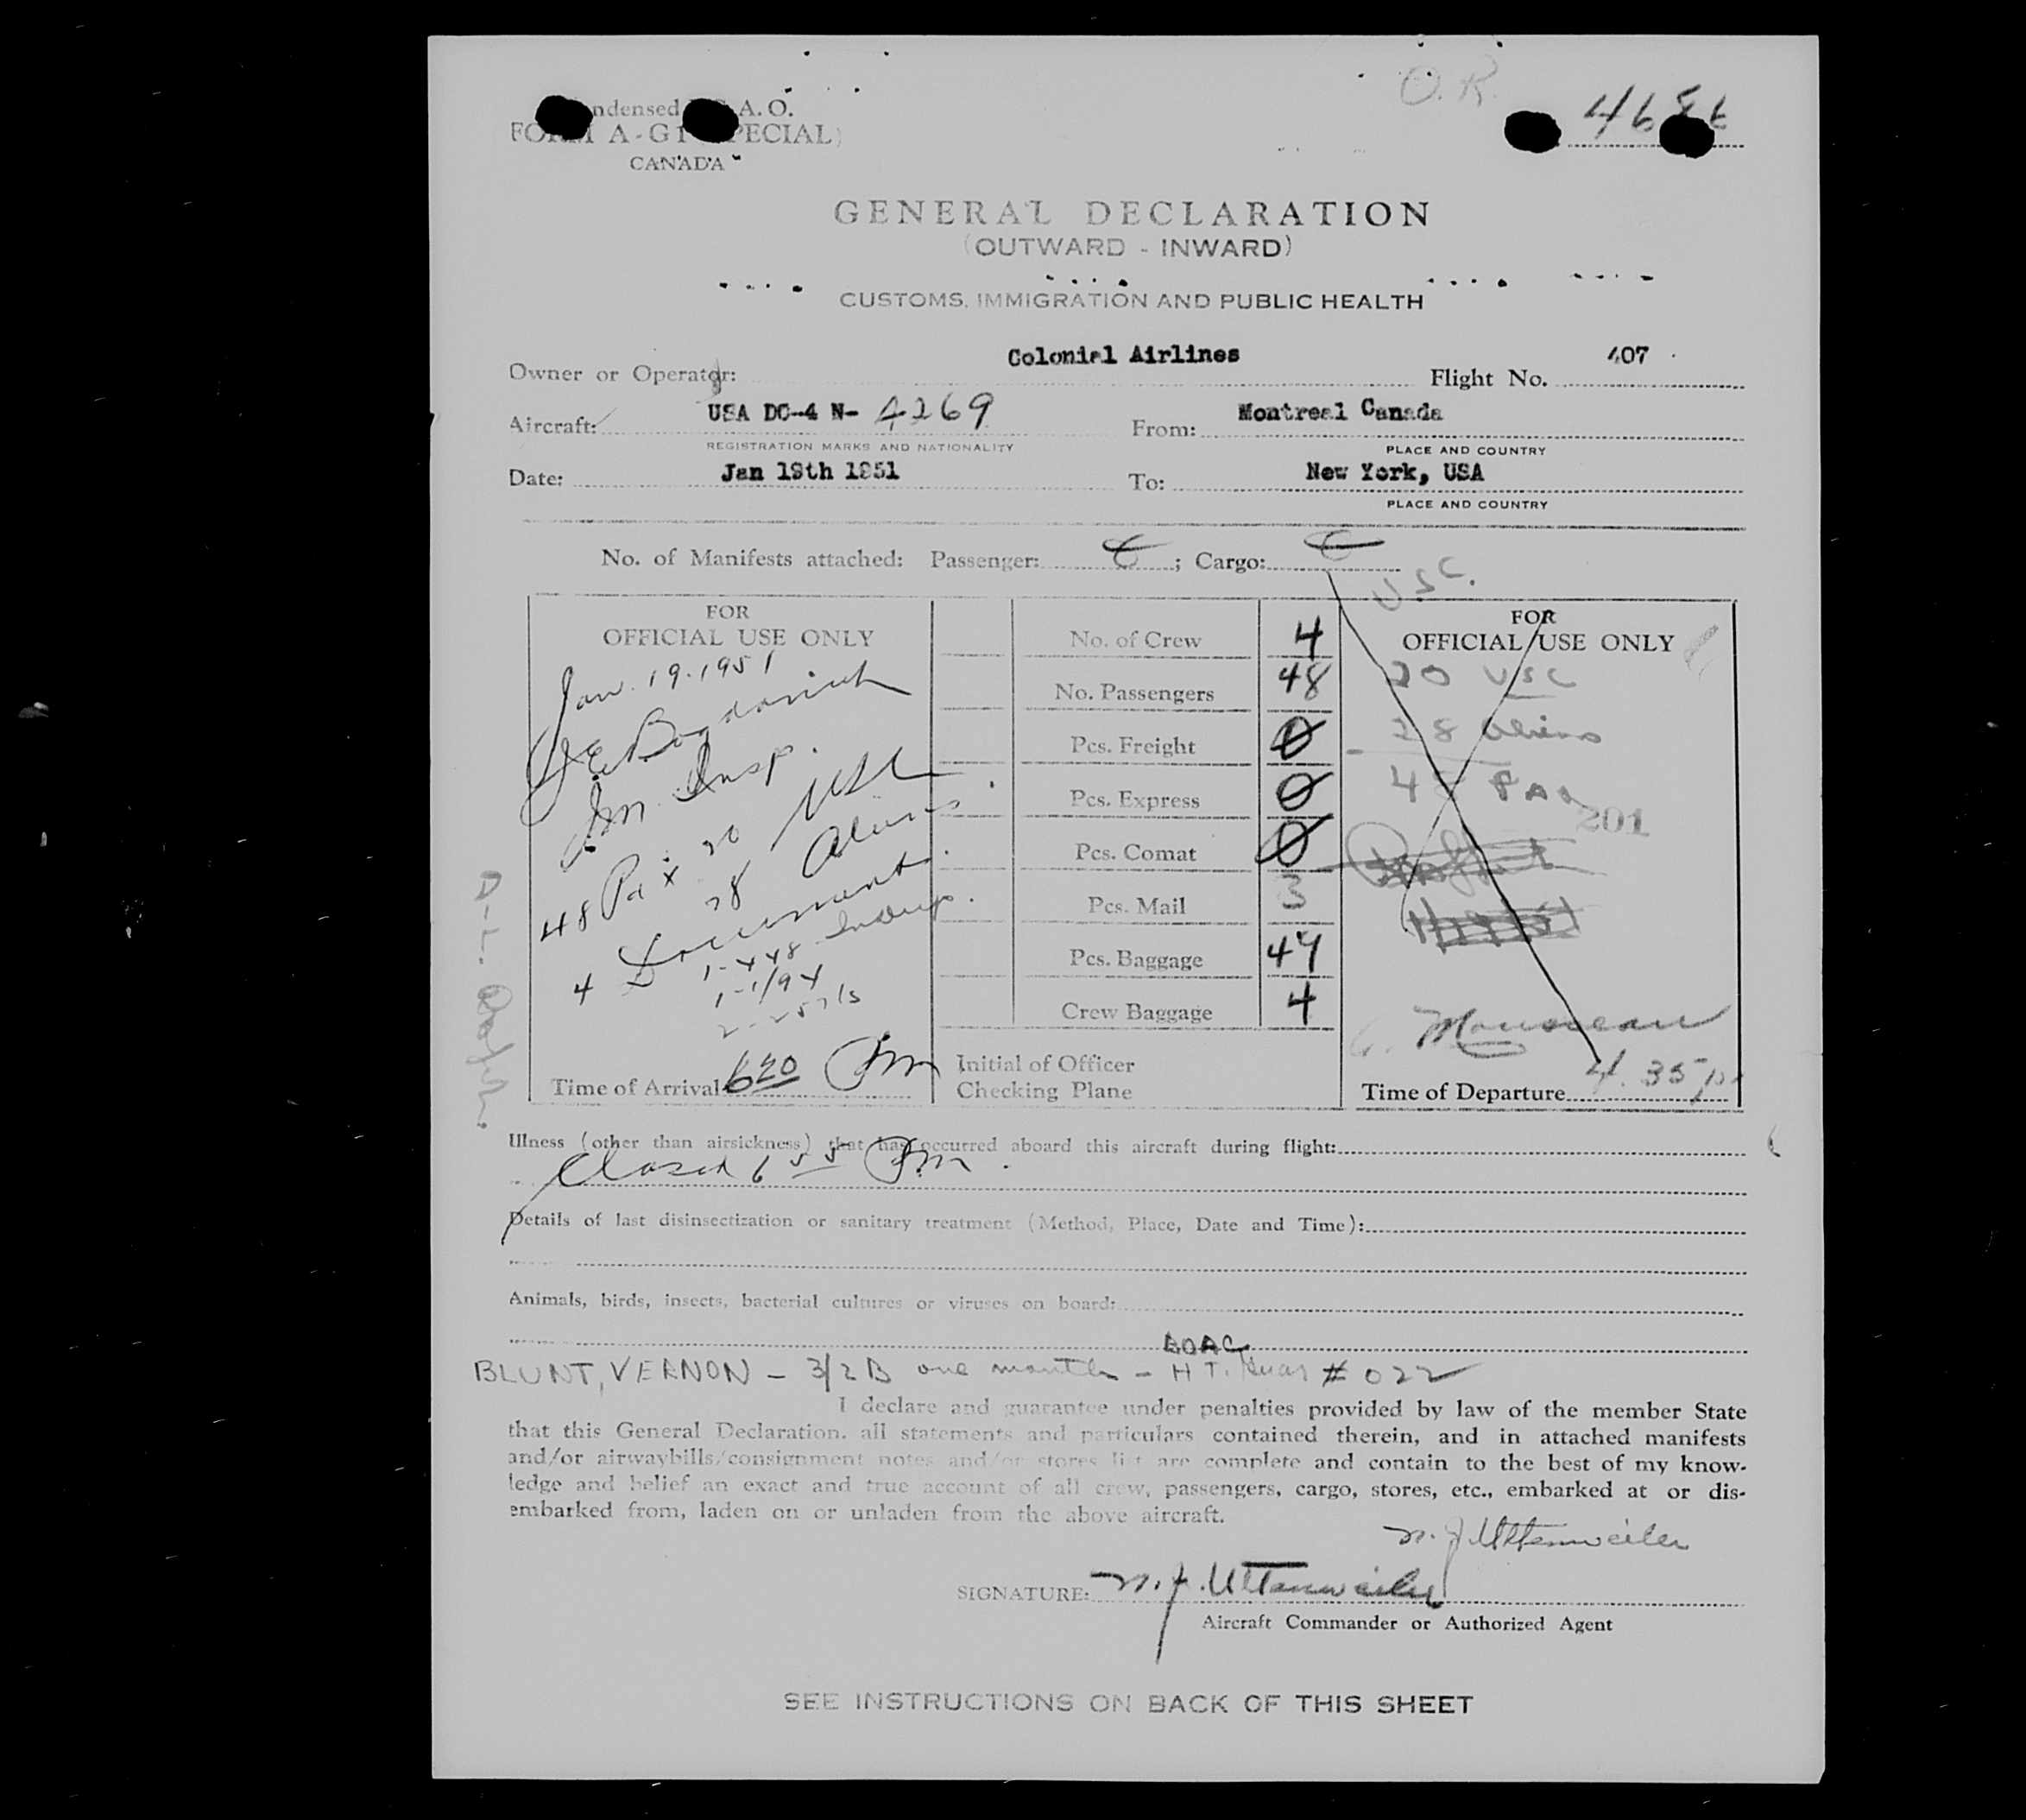 Condensed I.C.A.O.
O.R.
FORM A-G1 (SPECIAL)
CANADA
GENERAL DECLARATION
(OUTWARD - INWARD)
CUSTOMS, IMMIGRATION AND PUBLIC HEALTH
Owner or Operator: Colonial Airlines Flight No. 407
Aircraft: USA DC-4 N- 4269 From: Montreal Canada
REGISTRATION MARKS AND NATIONALITY PLACE AND COUNTRY
Date: Jan 19th 1951 To: New York, USA
PLACE AND COUNTRY
No. of Manifests attached: Passenger: ; Cargo:
USC.
FOR
OFFICIAL USE ONLY
Jan. 19. 1951
Im Insp.
48 Pax 20 USC
28 Aliens
4 Documents
Time of Arrival 6 20 Pm
No. of Crew 4
No. Passengers 48
Pcs. Freight 0
Pcs. Express 0
Pcs. Comat 0
Pcs. Mail 3
Pcs. Baggage 47
Crew Baggage 4
Initial of Officer
Checking Plane
FOR
OFFICIAL USE ONLY
20 USC
28 Aliens
48 PAX
201
Time of Departure 4.35 pm
Illness (other than airsickness) that has occurred aboard this aircraft during flight:
Closed 6 55 Pm.
Details of last disinsectization or sanitary treatment (Method, Place, Date and Time):
Animals, birds, insects, bacterial cultures or viruses on board:
BOAC
BLUNT, VERNON - 3/2B one month - #022
I declare and guarantee under penalties provided by law of the member State
that this General Declaration, all statements and particulars contained therein, and in attached manifests
and/or airwaybills/consignment notes and/or stores list are complete and contain to the best of my know-
ledge and belief an exact and true account of all crew, passengers, cargo, stores, etc., embarked at or dis-
embarked from, laden on or unladen from the above aircraft.
N. J. Uttenweiler
SIGNATURE: N. J. Uttenweiler
Aircraft Commander or Authorized Agent
SEE INSTRUCTIONS ON BACK OF THIS SHEET